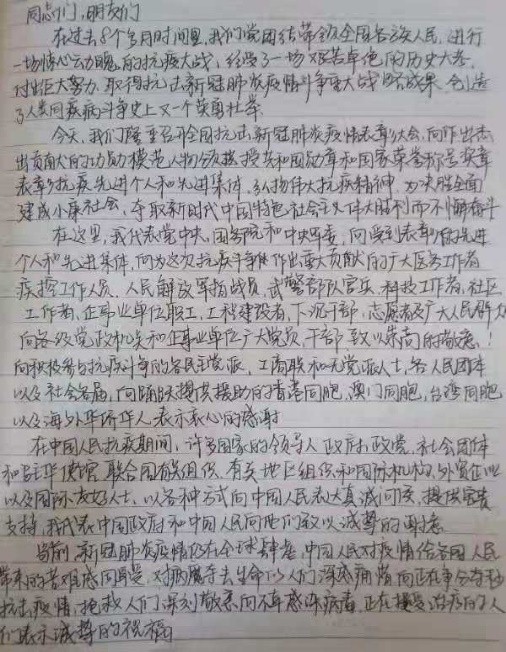 同志们，朋友们
在过去8个多月时间里，我们党团结带领全国各族人民，进行
一场惊心动魄的抗疫大战，经受了一场艰苦卓绝的历史大考
付出巨大努力，取得抗击新冠肺炎疫情斗争重大战略成果，创造
了人类同疾病斗争史上又一个英勇壮举
今天，我们隆重召开全国抗击新冠肺炎疫情表彰大会，向作出杰
出贡献的功勋模范人物颁授共和国勋章和国家荣誉称号奖章
表彰抗疫先进个人和先进集体，弘扬伟大抗疫精神，为决胜全面
建成小康社会，夺取新时代中国特色社会主义伟大胜利而不懈奋斗
在这里，我代表党中央，国务院和中央军委，向受到表彰的先进
个人和先进集体，向为这次抗疫斗争作出重大贡献的广大医务工作者
疾控工作人员，人民解放军指战员，武警部队官兵，科技工作者，社区
工作者，企事业单位职工，工程建设者，下沉干部，志愿者及广大人民群众
向各级党政机关和企事业单位广大党员，干部致以崇高的敬意！
向积极参与抗疫斗争的各民主党派，工商联和无党派人士，各人民团体
以及社会各届，向踊跃提供援助的香港同胞，澳门同胞，台湾同胞
以及海外华侨华人表示衷心的感谢
在中国人民抗疫期间，许多国家的领导人政府，政党，社会团体
和驻华使馆，联合国有关组织，有关地区组织和国际机构，外资企业
以及国际友好人士，以各种方式向中国人民表达真诚问候，提供宝贵
支持，我代表中国政府和中国人民向他们致以诚挚的
当前，新冠肺炎疫情仍在全球肆虐，中国人民对疫情给各国人民
带来的苦难感同身受，对 去生命的人们深感痛惜向正在争分夺秒
抗击疫情，挽救人们深刻敬意向不幸感染病毒，正在接受治疗的人
们表示诚挚的祝福